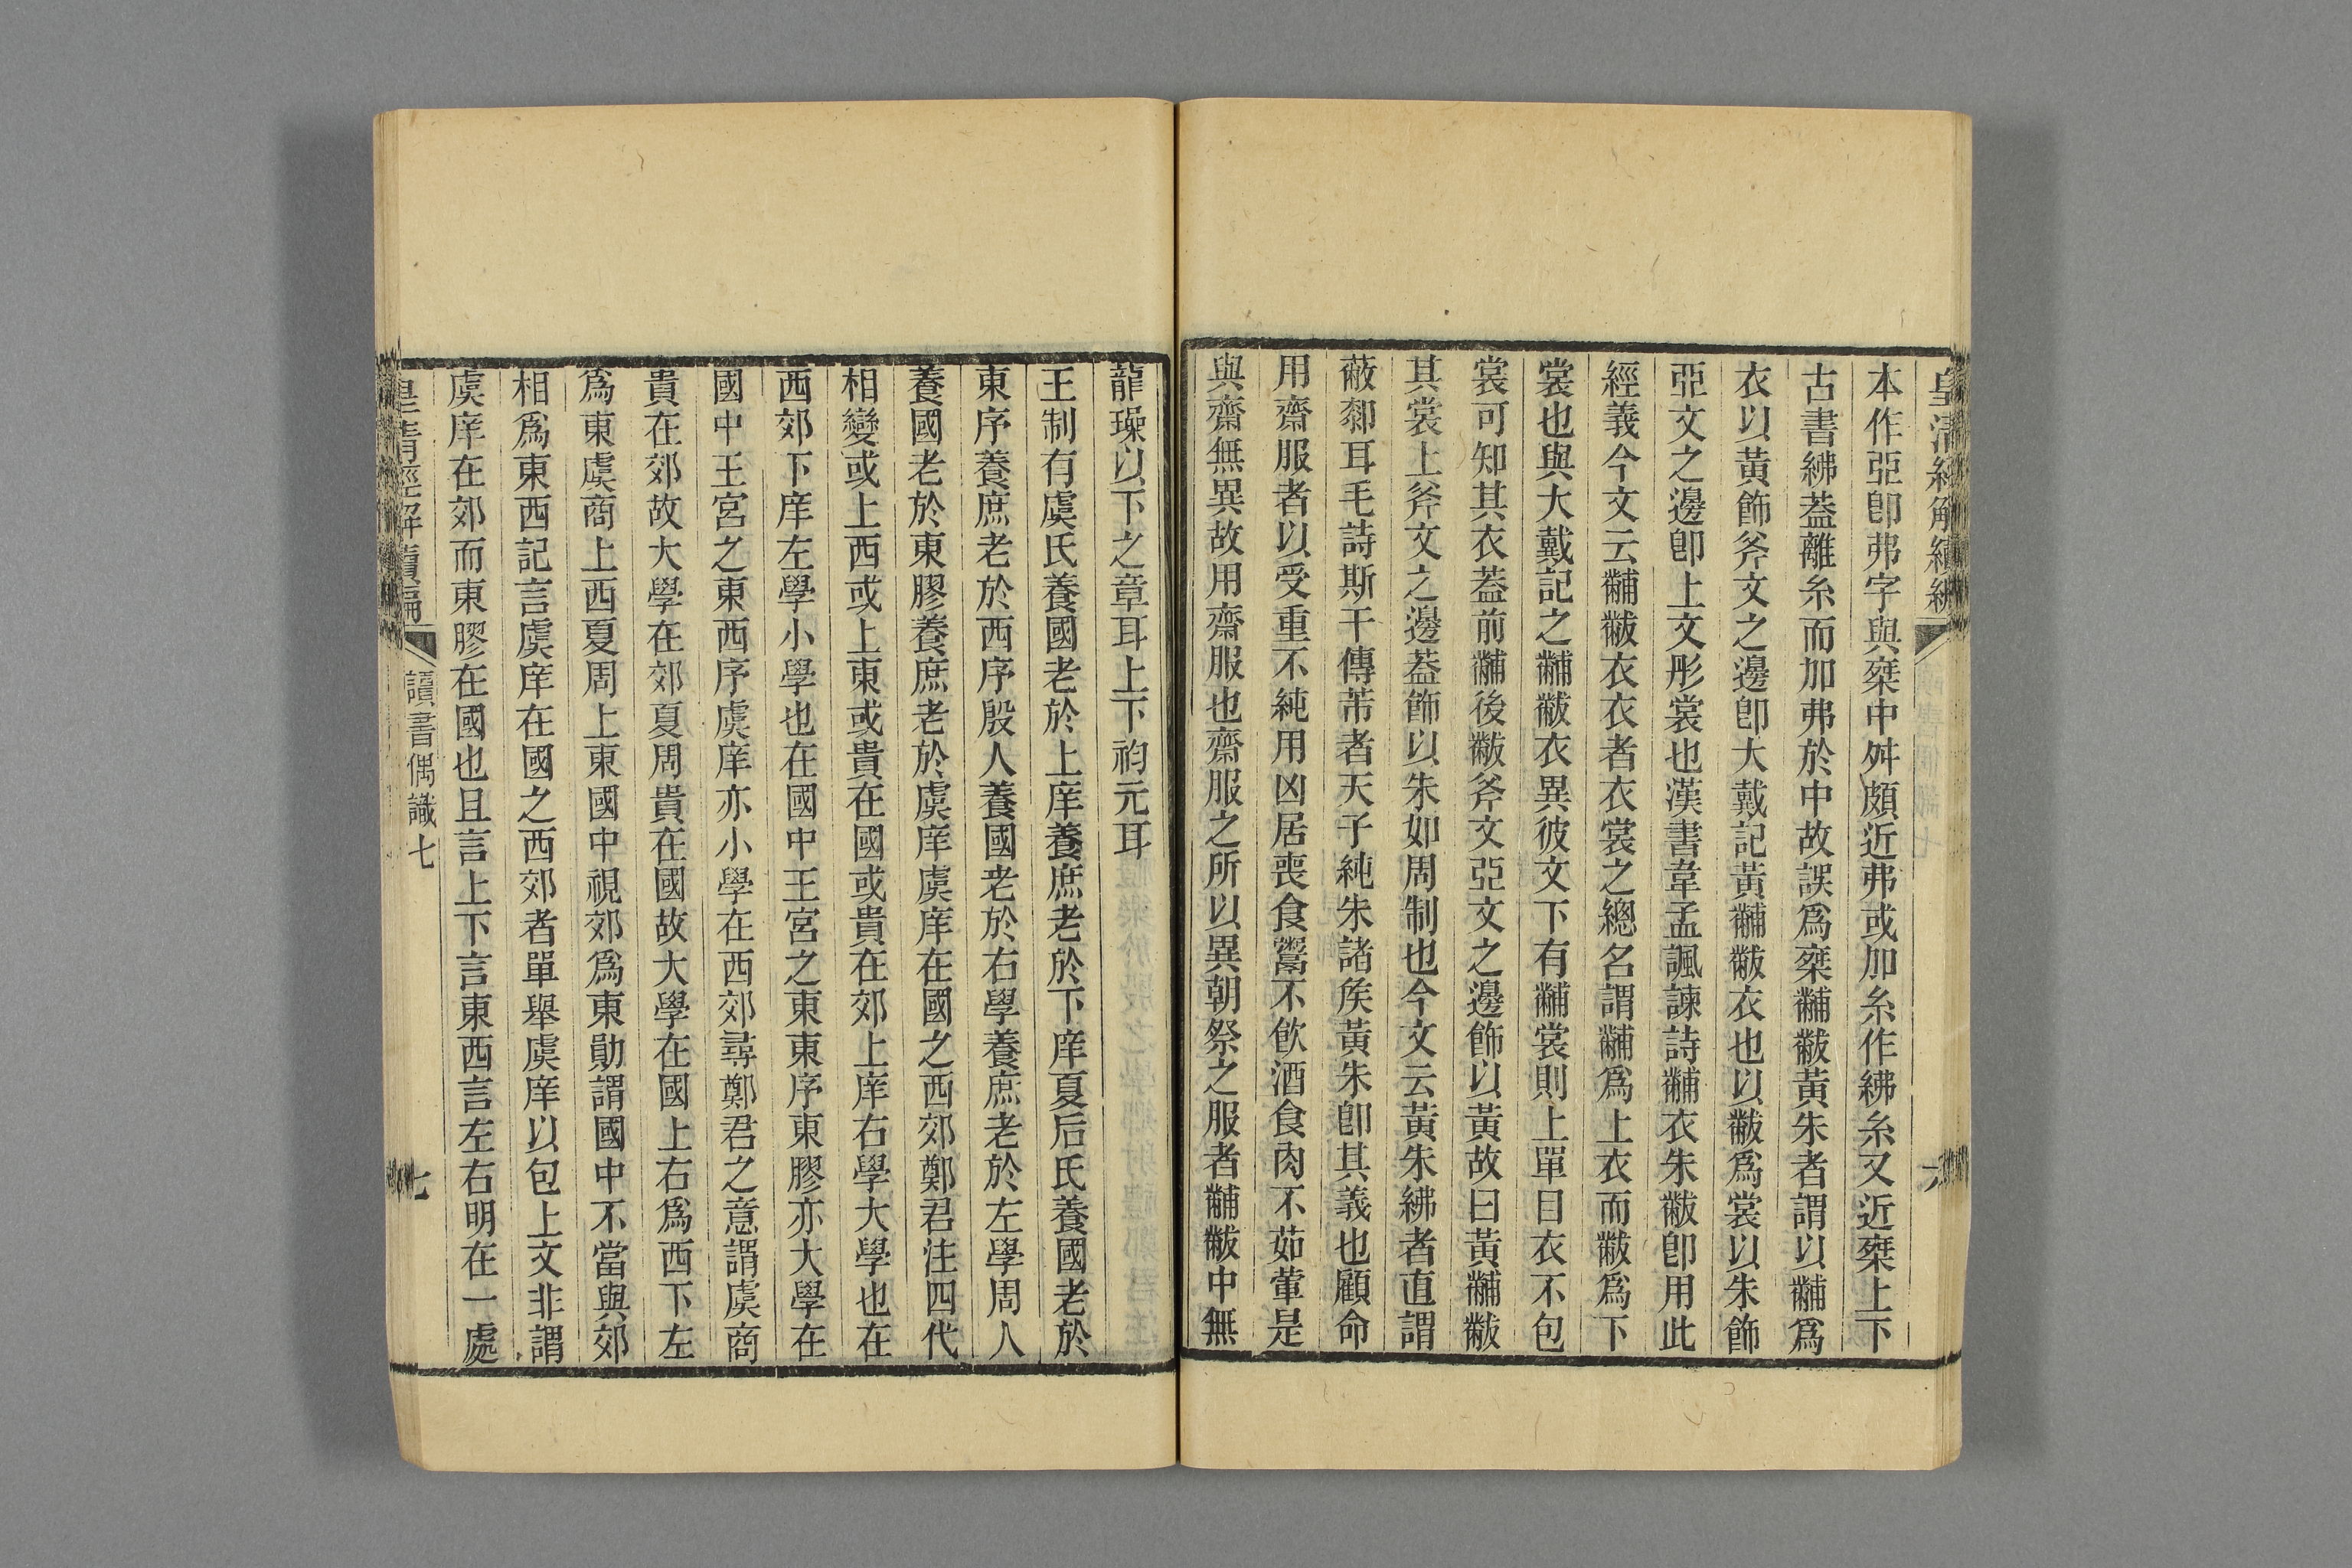 皇清經解續編
六
本作亞卽弗字與桀中舛頗近弗或加糸作紼糸又近桀上下
古書紼蓋離糸而加弗於中故誤爲桀黼黻黃朱者謂以黼爲
衣以黃飾斧文之邊卽大戴記黃黼黻衣也以黻爲裳以朱飾
亞文之邊卽上文彤裳也漢書韋孟諷諫詩黼衣朱黻卽用此
經義今文云黼黻衣衣者衣裳之總名謂黼爲上衣而黻爲下
裳也與大戴記之黼黻衣異彼文下有黼裳則上單目衣不包
裳可知其衣蓋前黼後黻斧文亞文之邊飾以黃故曰黃黼黻
其裳上斧文之邊蓋飾以朱如周制也今文云黃朱紼者直謂
蔽厀耳毛詩斯干傳芾者天子純朱諸矦黃朱卽其義也顧命
用齋服者以受重不純用凶居喪食鬻不飮酒食肉不茹葷是
與齋無異故用齋服也齋服之所以異朝祭之服者黼黻中無
龍璪以下之章耳上下袀元耳
王制有虞氏養國老於上庠養庶老於下庠夏后氏養國老於
東序養庶老於西序殷人養國老於右學養庶老於左學周人
養國老於東膠養庶老於虞庠虞庠在國之西郊鄭君注四代
相變或上西或上東或貴在國或貴在郊上庠右學大學也在
西郊下庠左學小學也在國中王宮之東東序東膠亦大學在
國中王宮之東西序虞庠亦小學在西郊尋鄭君之意謂虞商
貴在郊故大學在郊夏周貴在國故大學在國上右爲西下左
爲東虞商上西夏周上東國中視郊爲東勛謂國中不當與郊
相爲東西記言虞庠在國之西郊者單舉虞庠以包上文非謂
虞庠在郊而東膠在國也且言上下言東西言左右明在一處
皇清經解續編
讀書偶識七
七